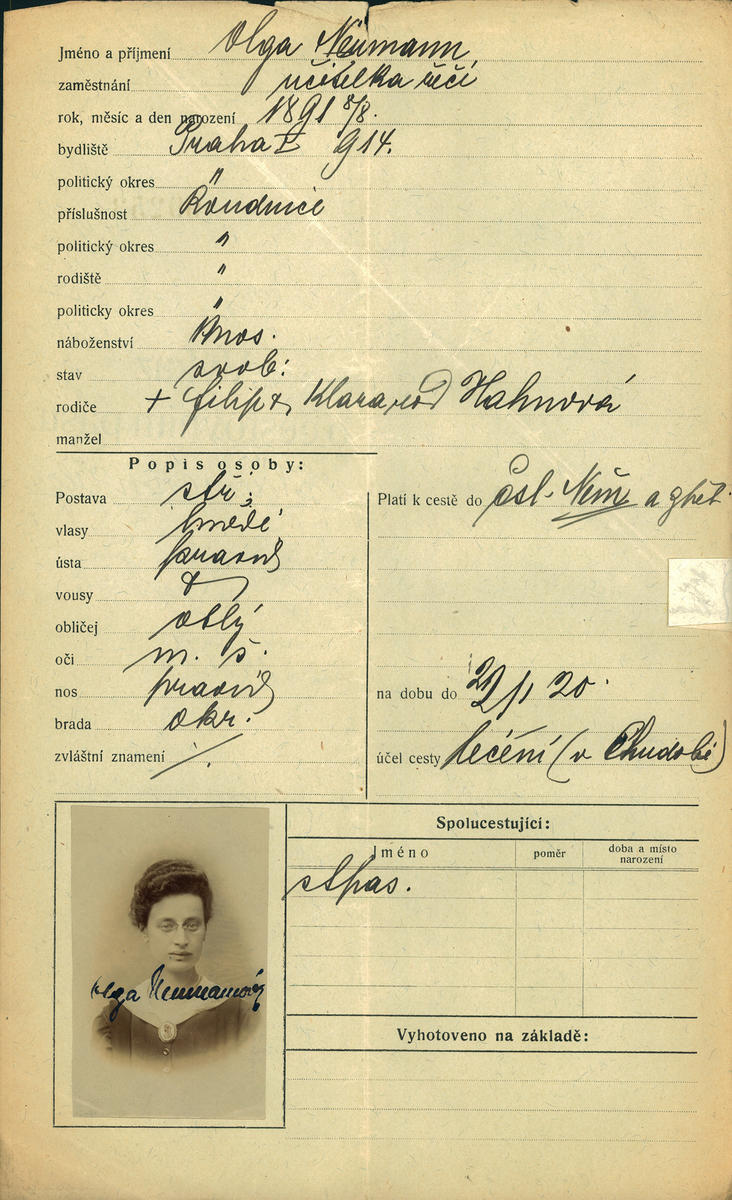 Jméno a příjmení Olga Neumann
zaměstnání učitelka řečí
rok, měsíc a den narození 1891 8/8.
bydliště Praha II 914.
politický okres "
příslušnost Roudnice
politický okres "
rodiště "
politicky okres "
náboženství mos.
stav svob.
rodiče + Filip & Klara, roz Hahnová
manžel
Popis osoby:
Postava stř.
vlasy hnědé
ústa pravid
vousy
obličej oblý
oči m. š.
nos pravid
brada okr.
zvláštní znamení ./.
Platí k cestě do Čsl. Něm a zpět.
na dobu do 20.
účel cesty léčení (v Chudobě)
Spolucestující:
Jméno
poměr
doba a místo narození
Vyhotoveno na základě:
Olga Neumannová